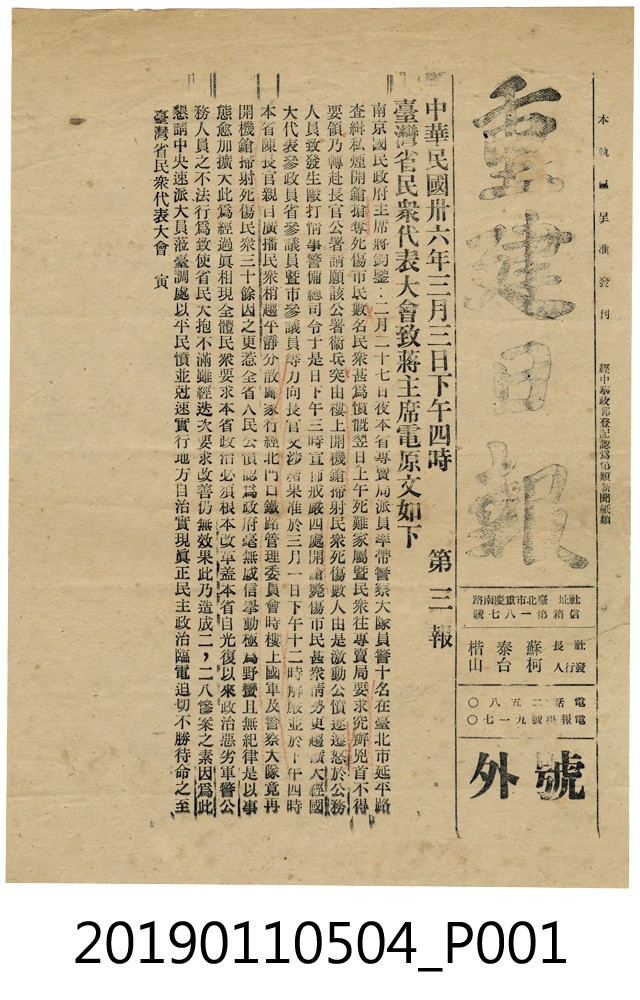 本號應早准發刊
經中華郵政登記認為第一類新聞紙類
重建日報
社址 臺北市重慶南路
信箱第一八七號
社長 蘇泰楷
發行人 柯台山
電話二五八〇
電報掛號九一七〇
號外
中華民國卅六年三月三日下午四時　第三報
臺灣省民衆代表大會致蔣主席電原文如下
南京國民政府主席蔣鈞鑒．二月二十七日夜本省專賣局派員率帶警察大隊員警十名在臺北市延平路
查緝私煙開鎗搶奪死傷市民數名民衆甚爲憤慨翌日上午死難家屬暨民衆往專賣局要求究辦兇首不得
要領乃轉赴長官公署請願該公署衞兵突由樓上開機鎗掃射民衆死傷數人由是激動公憤遂遷怒於公務
人員致發生毆打情事警備總司令于是日下午三時宣布戒嚴四處開鎗斃傷市民甚衆情勢更趨擴大經國
大代表參政員省參議員暨市參議員等力向長官交涉結果准於三月一日下午十二時解嚴並於下午四時
本省陳長官親自廣播民衆稍趨平靜分散歸家行經北門口鐵路管理委員會時樓上國軍及警察大隊竟再
開機鎗掃射死傷民衆三十餘因之更惹全省人民公憤認爲政府毫無威信舉動極爲野蠻且無紀律是以事
態愈加擴大此爲經過真相現全體民衆要求本省政治必須根本改革蓋本省自光復以來政治惡劣軍警公
務人員之不法行爲致使省民大抱不滿雖經迭次要求改善仍無效果此乃造成二，二八慘案之素因爲此
懇請中央速派大員蒞臺調處以平民憤並剋速實行地方自治實現眞正民主政治臨電迫切不勝待命之至
臺灣省民衆代表大會　寅
20190110504_P001